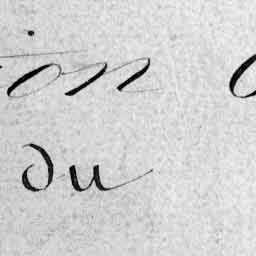 ion
du